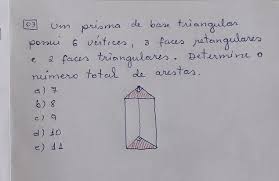 03 Um prisma de base triangular
possui 6 vértices, 3 faces retangulares
e 2 faces triangulares. Determine o
número total de arestas.
a) 7
b) 8
c) 9
d) 10
e) 11